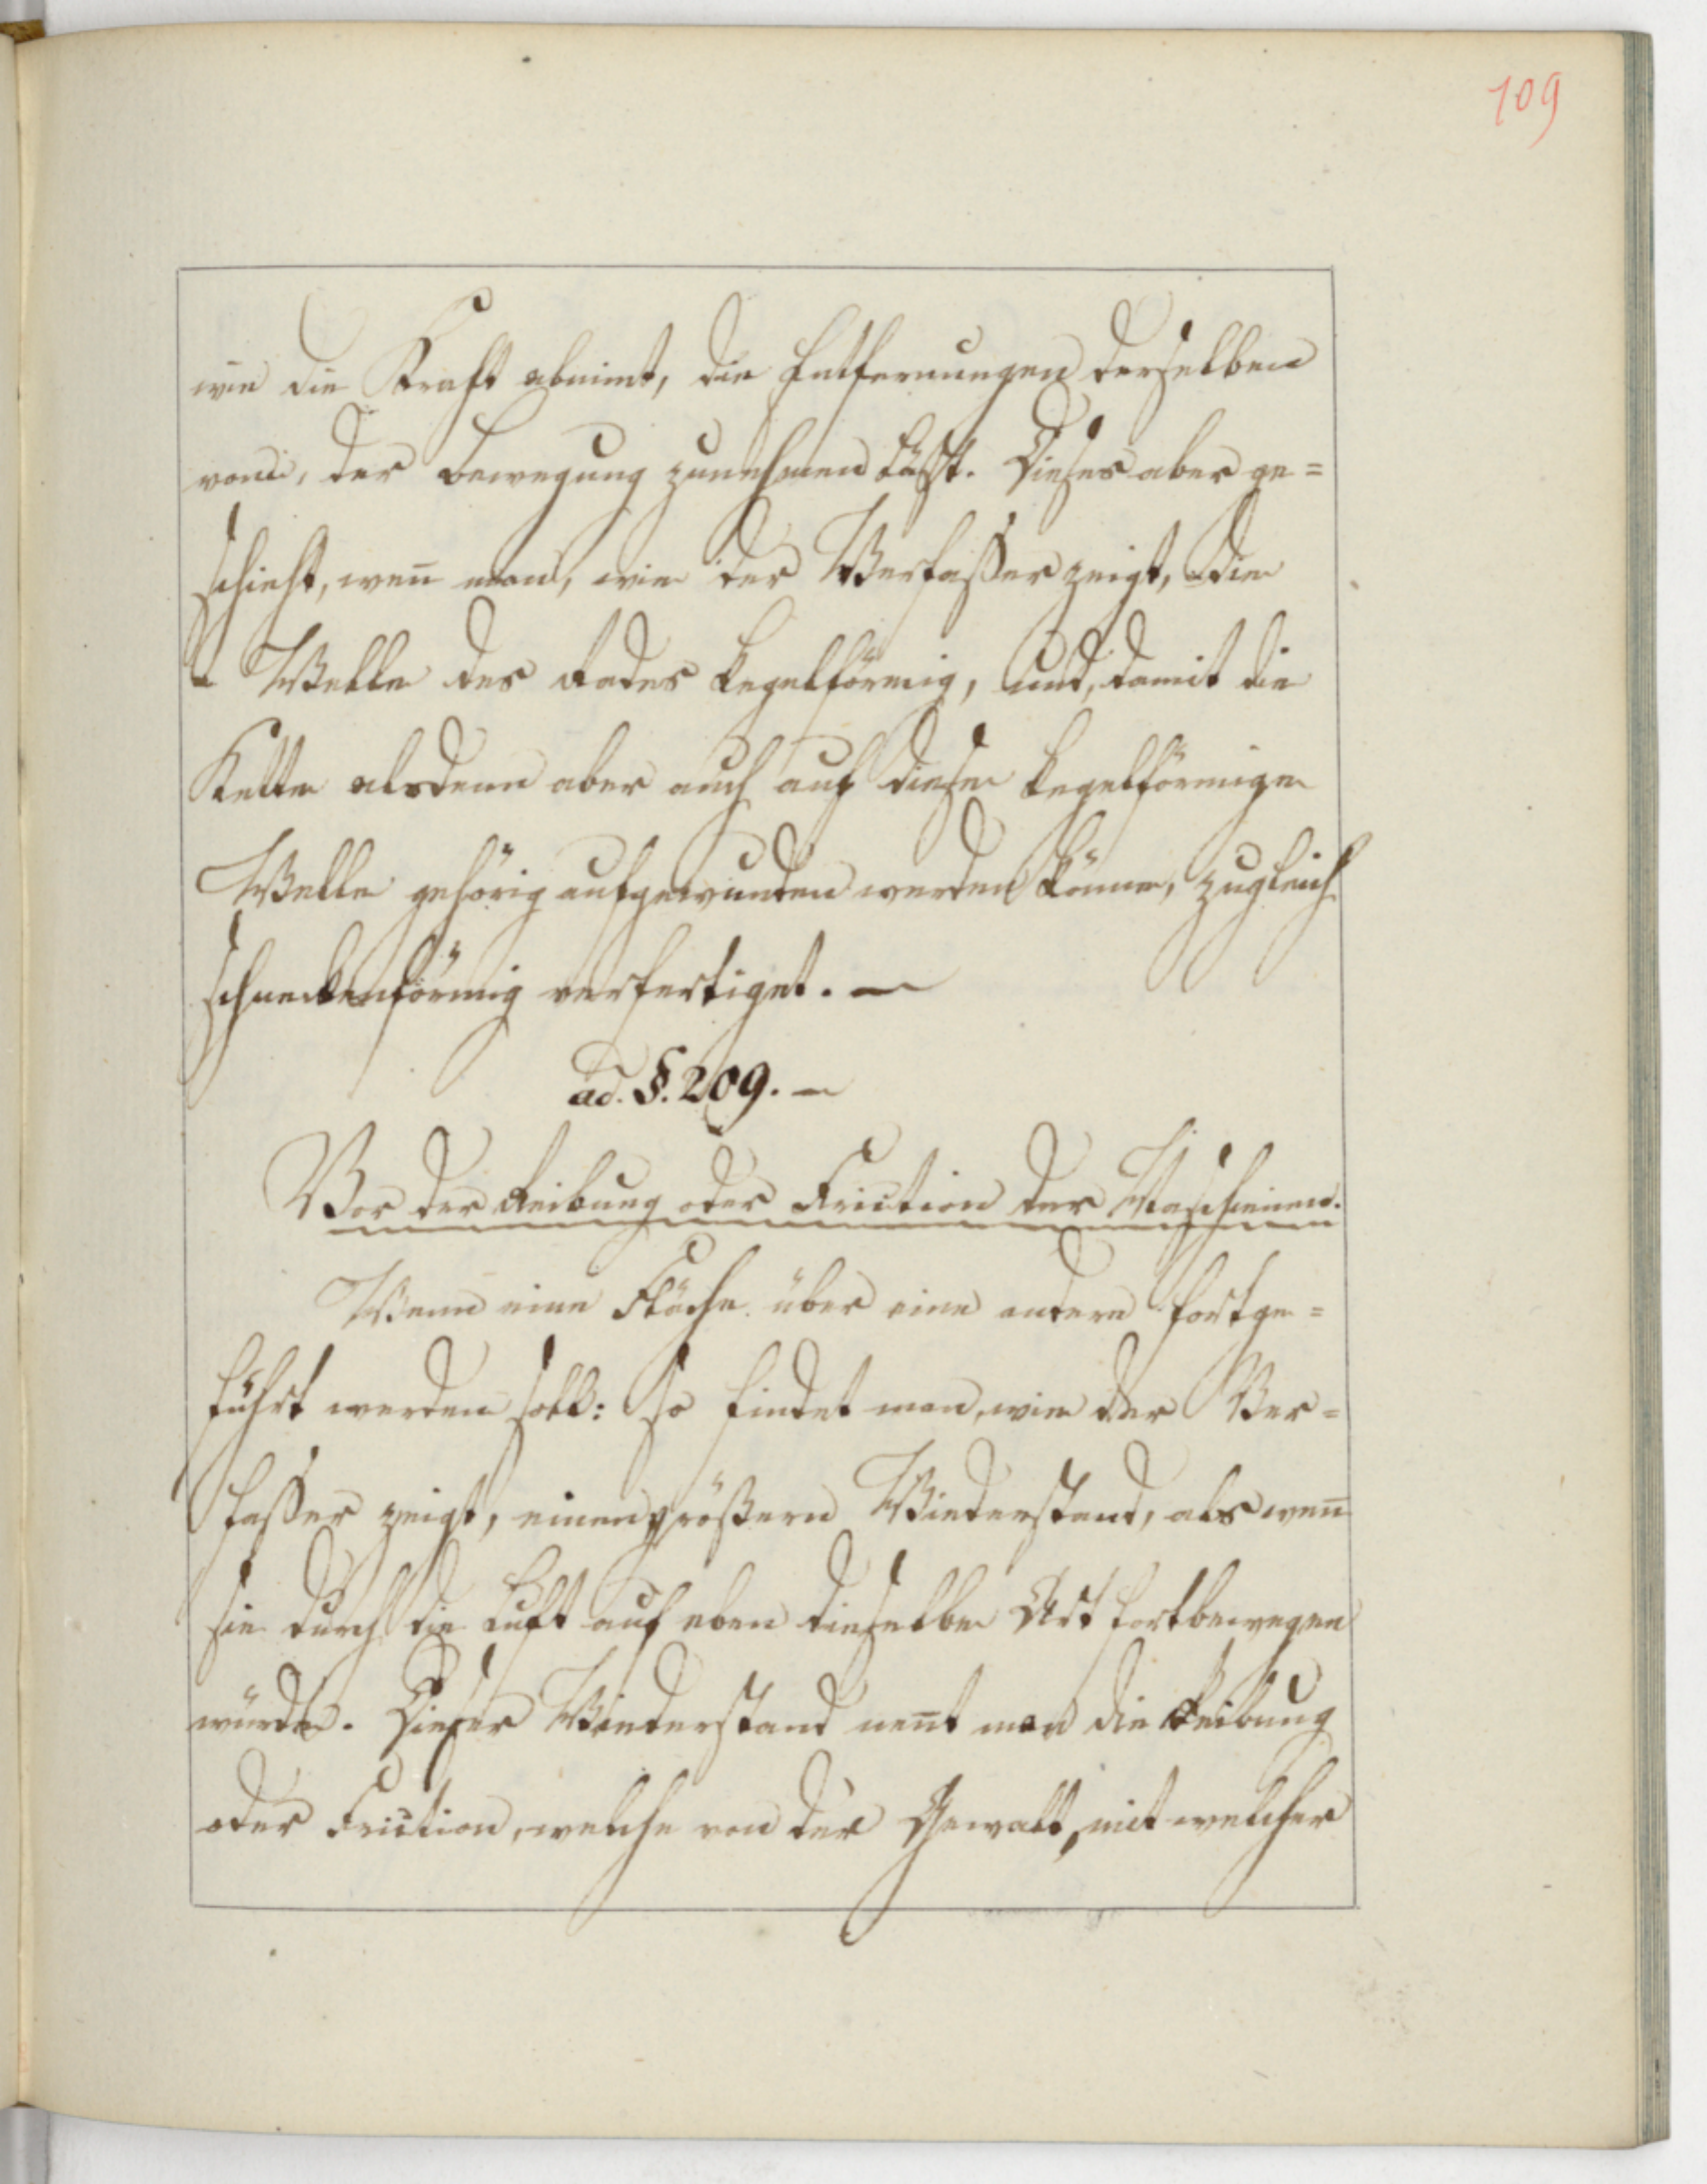 109
wie die Kraft abnimt, die Entfernungen derselben
von, der Bewegung zunehmen läßt. Dieses aber ge=
schieht, weñ man, wie der Verfaßer zeigt, die
Welle des Rades kegelförmig, und, damit die
Kette alsdenn aber auch auf diese kegelförmige
Welle gehörig aufgewunden werden könne, zugleich
schneckenförmig verfertiget. —
ad. §. 209. —
Von der Reibung oder Friction der Maschienen.
Wenn eine Fläche über eine andere fortge=
führt werden soll: so findet man, wie der Ver=
faßer zeigt, einen größern Wiederstand, als weñ
sie durch die Luft auf eben dieselbe Art fortbewegen
würde. Dieser Wiederstand neñt man die Reibung
oder Friction, welche von der Gewalt, mit welcher